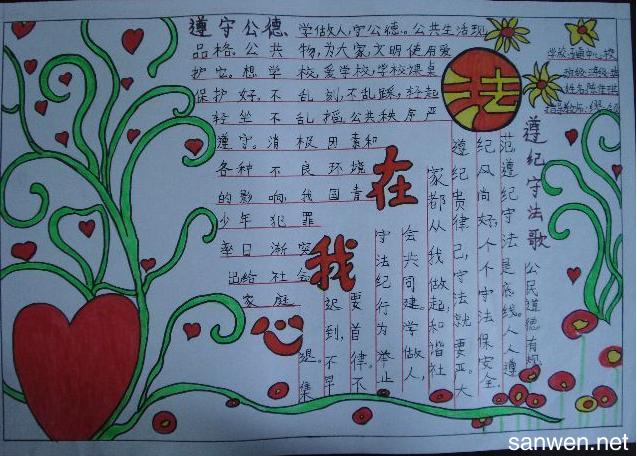 遵守公德
学做人,守公德。公共生活现
品格。公共物,为大家,文明使用爱
护它。想学校,爱学校,学校课桌
保护好。不乱刻,不乱踩,轻起
轻坐不乱搞。公共秩序严
遵守。消极因素和
各种不良环境
的影响,我国青
少年犯罪
率日渐突
出给社会
家庭
法
在
我
心
遵纪守法歌
公民道德有规
范遵纪守法是底线。人人遵
纪风尚好,个个守法保安全
遵纪贵律己,守法就要严。大
家都从我做起,和谐社
会共同建。学做人,
守法纪行为举止
要首律。不
迟到,不早
退。集
sanwen.net